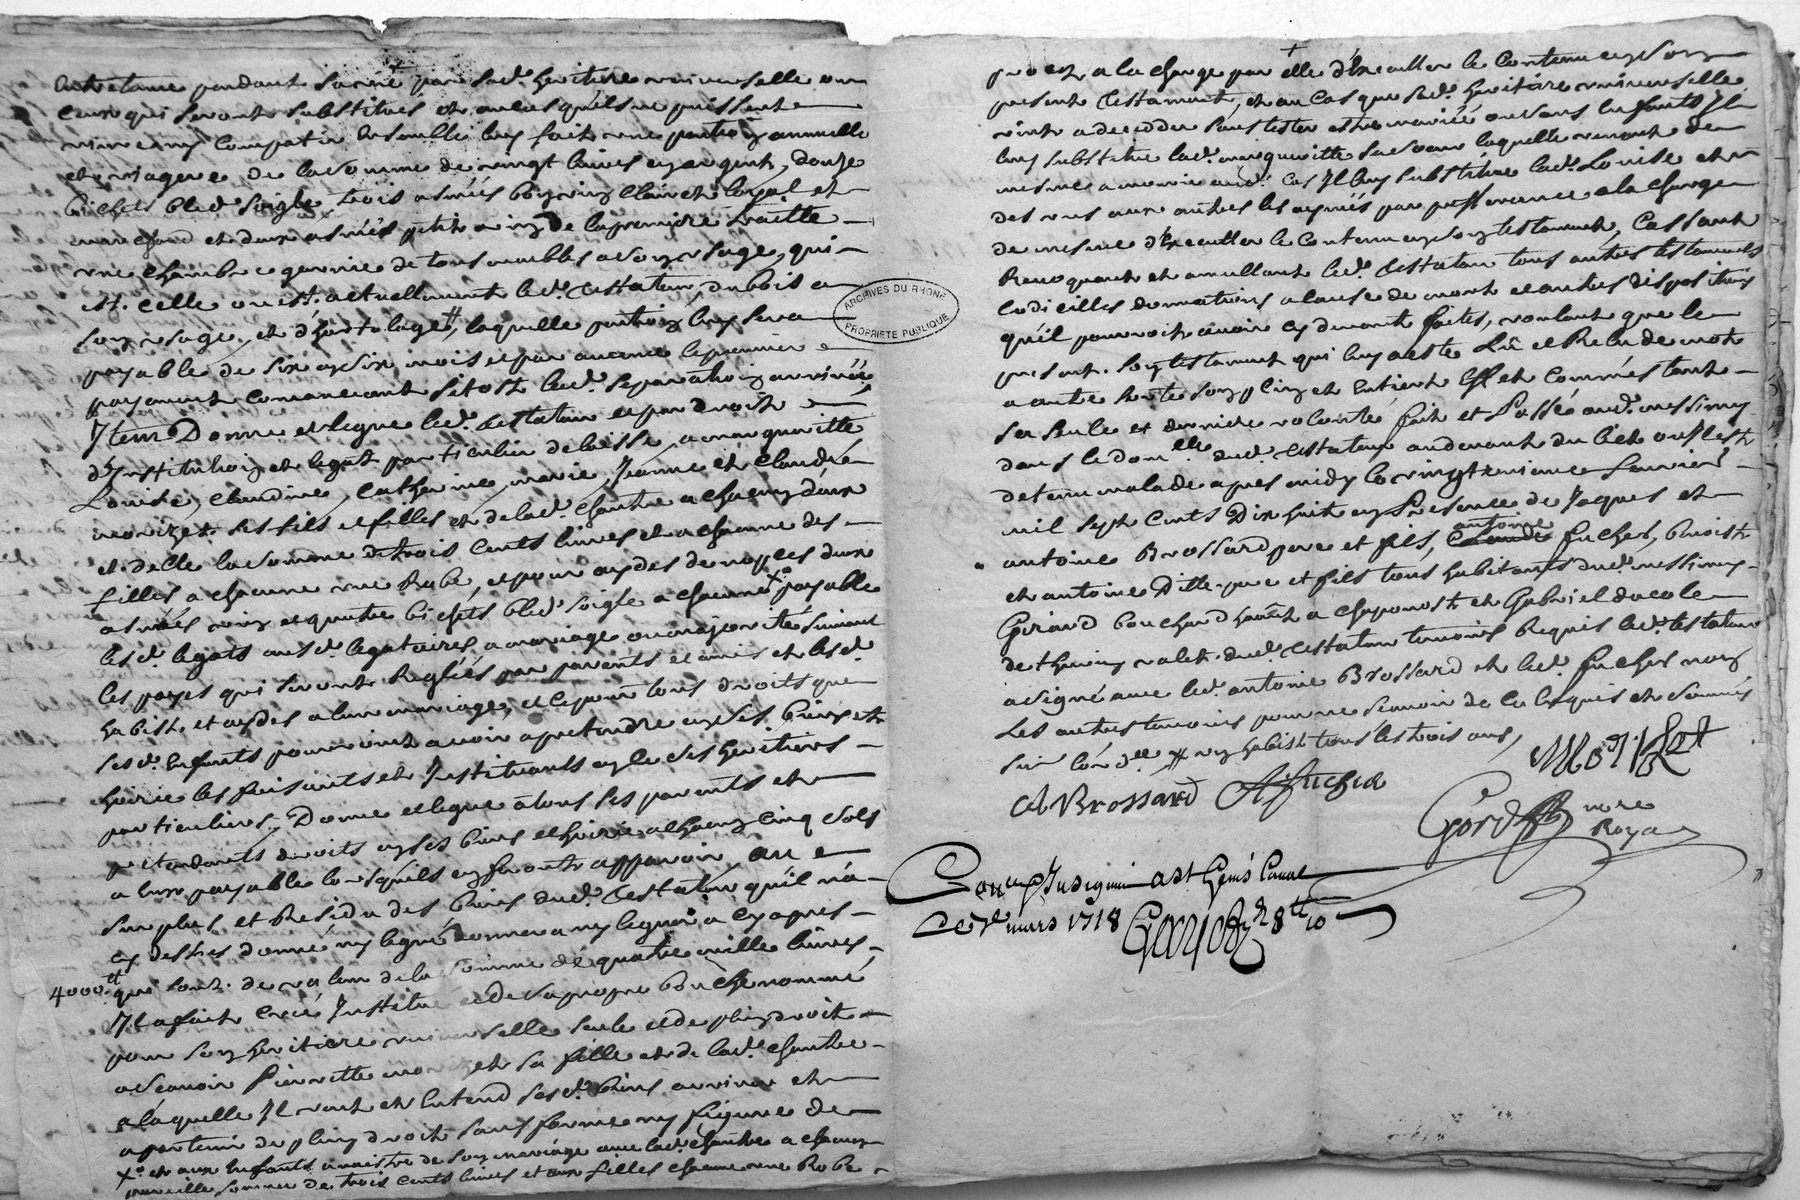 entretenue pendant sa vie par sad. heritiere universelle ou
ceux qui seront substitues et au cas quils ne puissent
vivre ny compatir ensemble luy fait une pention annuelle
et viagere de la somme de vingt livres en argent, douze
bichets bled soigle trois asnées bon vin clairet loyal et
marchand et deux asnées petit vin de la premiere traitte
une chambre garnie de tous meubles a son usage, qui
est celle ou est actuellement led. testateur, du bois a
son usage, et d'hortolage, laquelle pention luy sera
payable de six en six mois et par avance le premier
payement commencant sitost lad. separation arrivée
Item Donne et legue led. testateur et par droit
d'institution et legat particulier delaisse a margueritte
Louise, claudine, catherine, marie, Jeanne et claude
morizet ses fils et filles et de lad. chantre a chacun deux
et delle la somme de trois cents livres et a chacune des
filles a chacune une Robe, et pour aydes de nopces deux
asnées vin et quatre bichets bled soigle a chacune payable
lesd. legats ausd. legataires a mariage ou majorité suivant
les payes qui seront Reglées par parents et amis et lesd.
habits et aydes a leur mariage, et ce pour tous droits que
sesd. Enfants pourroient avoir a pretendre en ses biens et
hoirie les faisants et Instituants en ce ses heritiers
particuliers, Donne et legue a tous ses parents et
pretendants droits en ses biens et hoirie a chacun cinq sols
a eux payable lorsquils en feront apparoir, au
surplus et Residu des biens dud. testateur qu'il n'a
cy dessus donné ny legué donnera ny leguera cy apres
4000 qui sont de valeur de la somme de quatre mille livres
Il a fait creé Institué et de sa propre bouche nommé
pour son heritiere universelle seule et de plein droit
a scavoir Pierrette morizet sa fille et de lad. chantre
a laquelle Il veut et Entend sesd. biens arriver et
apartenir de plein droit sans forme ny figure de
et aux Enfants a naistre de son mariage avec lad. chantre a chacun
pareille somme de trois cents livres et aux filles chacune une Robe
procez a la charge par elle d'Executter le Contenu en son
present testament, et au cas que sad. heritiere universelle
vint a decedder sans tester estre mariée ou sans enfants Il
luy substitue lad. margueritte sa soeur laquelle venant de
mesme a mourir aud. cas Il luy substitue lad. Louise et
des unes aux autres les aynés par preferance a la charge
de mesme d'Executter le Contenu en son testament, Cassant
Revoquant et annullant led. testateur tous autres testaments
Codicilles donnations a cause de mort et autres dispositions
qu'il pourroit avoir cy devant faites, voulant que le
present son testament qui luy a esté Lû et Relu de mot
a autre sorte son plein et Entier Effet comme estant
sa seule et derniere volonté fait et Passé aud. messimy
dans le domlle dud. testateur au devant du lict ou Il est
detenu malade apres midy le vingt troisieme febvrier
mil sept cents Dix huit en Presence de Jaques et
antoine Brossard pere et fils, antoine fucher, benoist
et antoine Dille pere et fils tous habitants dud. messimy
Girard bouchard habt a chaponost et Gabriel ducole
de thurin valet dud. testateur temoins Requis led. testateur
a signé avec led. antoine Brossard et led. fucher non
Les autres temoins pour ne scavoir de ce Enquis et sommés
A Brossard A fucher
Morizet
nore
Royal
Conllé et Insignué a St Genis Laval
Ce 7e mars 1718
ARCHIVES DU RHÔNE
PROPRIETE PUBLIQUE